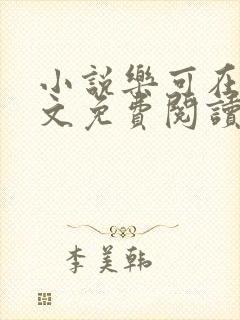 小説樂可在
文免費閱讀
李美韩